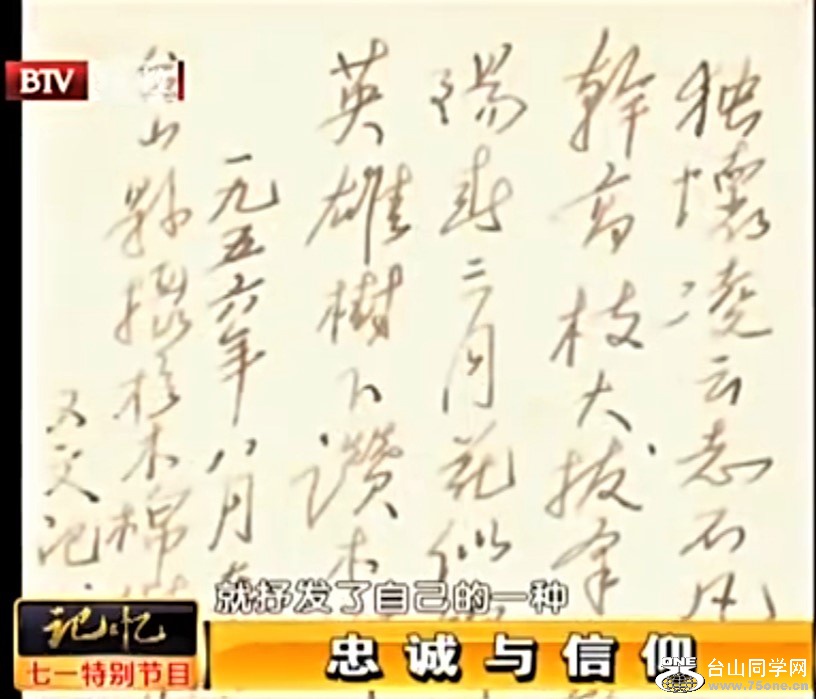 BTV
独懷凌云志不凡
幹高枝大拔
陽春二月花似
英雄樹下讚木
一九五六年八月
台山縣 木棉
又文记
就抒发了自己的一种
记忆
七一特别节目
忠诚与信仰
ONE
台山同学网
www.75one.cn